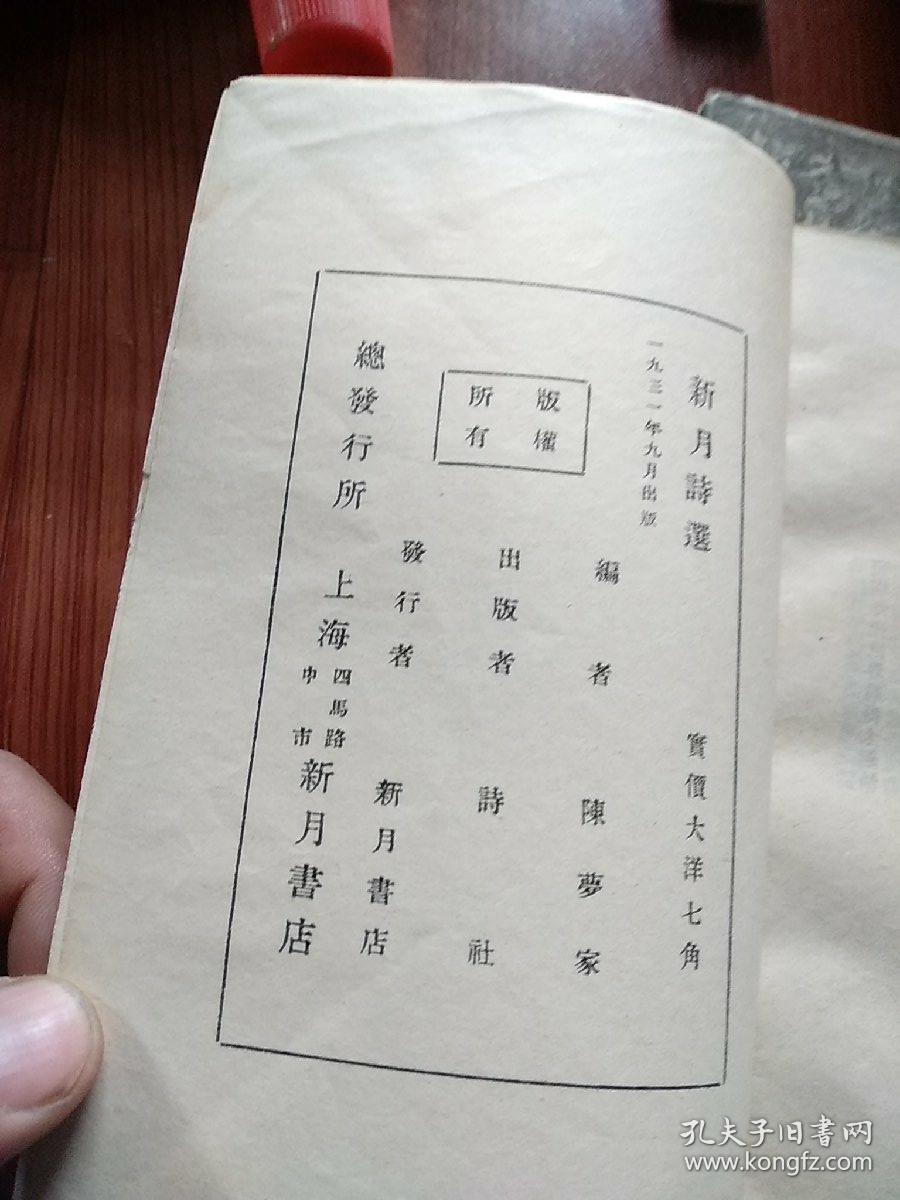 新月詩選
實價大洋七角
一九三一年九月出版
編者
陳夢家
版權
所有
出版者
詩社
發行者
新月書店
總發行所
上海
四馬路
中市
新月書店
孔夫子旧书网
www.kongfz.com